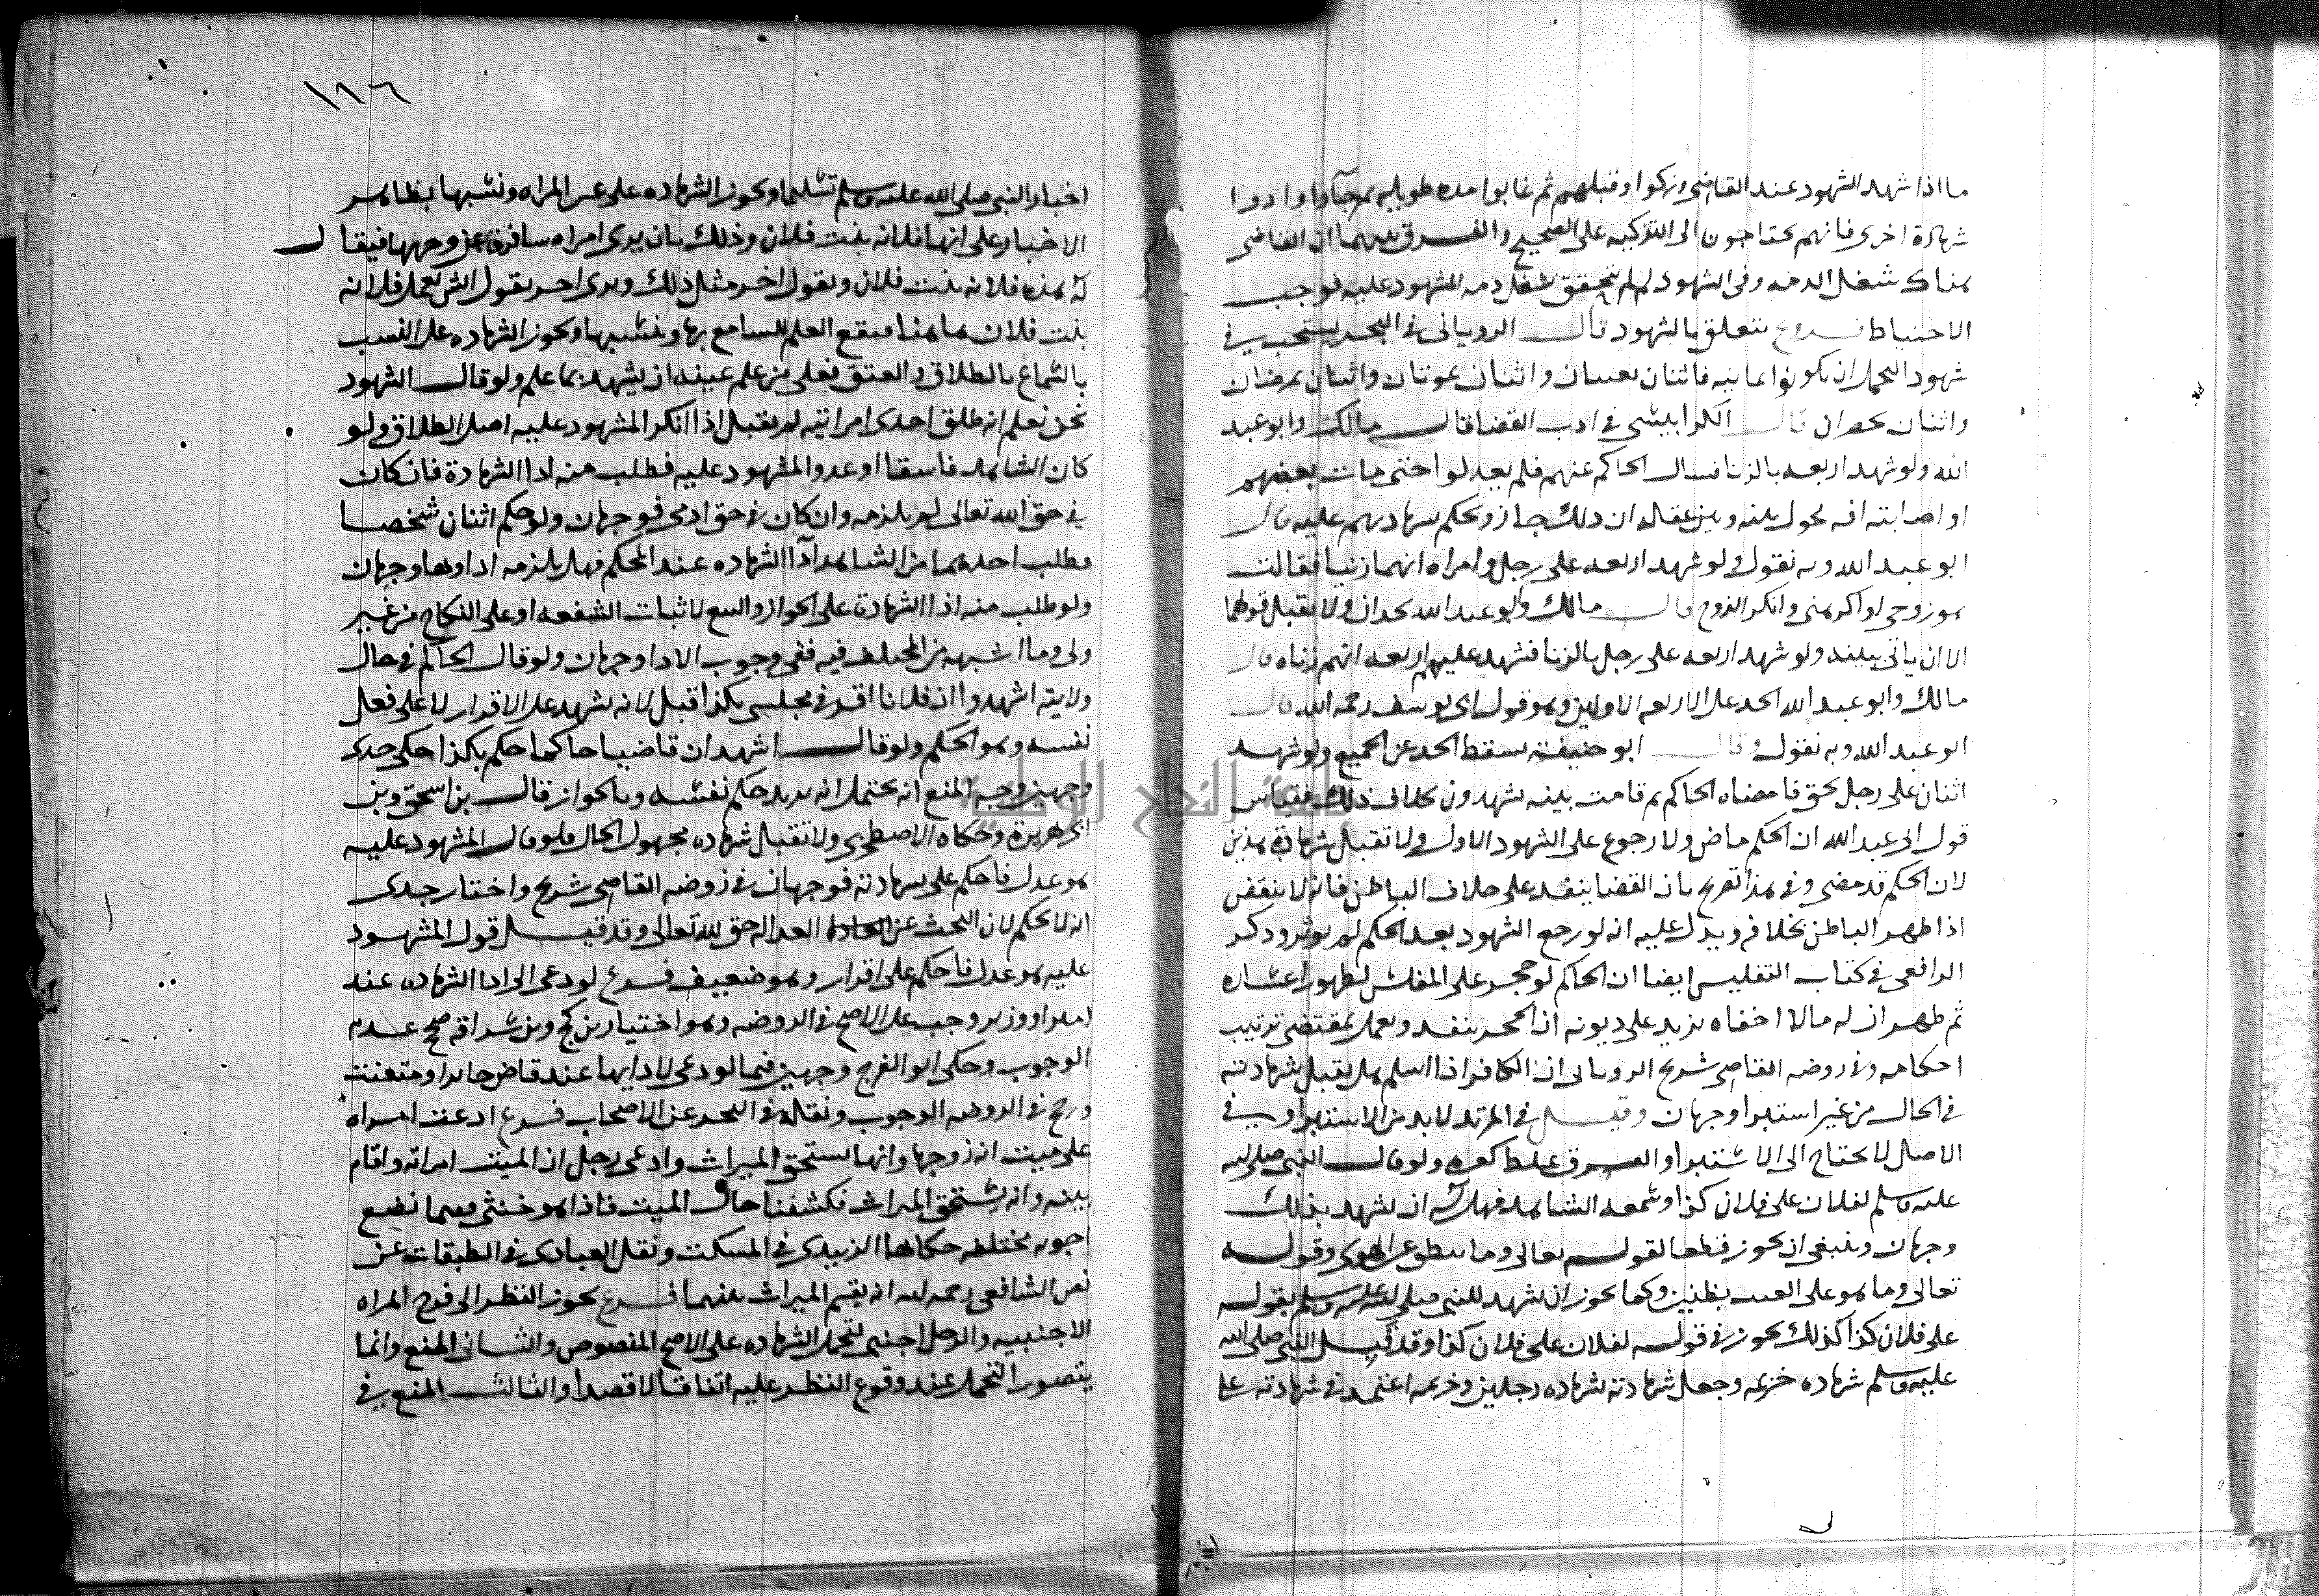 ما اذا شهد الشهود عند القاضي وزكوا وقبلهم ثم غابوا مده طويله ثم جآوا وادوا
شهادة اخرى فانهم يحتاجون الى التزكيه على الصحيح والفرق بينهما ان القاضي
هناك شغل الذمه وفى الشهود لم يتحقق شغل ذمه المشهود عليه فوجب
الاحتياط فروع تتعلق بالشهود قال الروياني في البحر يستحب في
شهود التحمل ان يكونوا ثمانيه فاثنان يغيبان واثنان يموتان واثنان يمرضان
واثنان يحضران قال الكرابيسي في ادب القضا قال مالك وابو عبد
الله ولو شهد اربعه بالزنا فسال الحاكم عنهم فلم يعدلوا حتى مات بعضهم
او اصابته افه تحول بينه وبين عقله ان ذلك جايز ويحكم بشهادتهم عليه قال
ابو عبد الله وبه نقول ولو شهد اربعه على رجل وامراه انهما زنيا فقالت
هو زوجي او اكرهني وانكر الزوج قال مالك وابو عبد الله يحدان ولا يقبل قولها
الا ان ياتي ببينه ولو شهد اربعه على رجل بالزنا فشهد عليهم اربعه انهم زناه قال
مالك وابو عبد الله الحد على الاربعه الاولين وهو قول ابي يوسف رحمه الله قال
ابو عبد الله وبه نقول وقال ابو حنيفة يسقط الحد عن الجميع ولو شهد
اثنان على رجل بحق فامضاه الحاكم ثم قامت بينه يشهدون بخلاف ذلك فقياس
قول ابي عبد الله ان الحكم ماض ولا رجوع على الشهود الاول ولا تقبل شهادة هذين
لان الحكم قد مضى وفي هذا تصريح بان القضا ينفد على خلاف الباطن فانه لا ينقض
اذا ظهر الباطن بخلافه ويدل عليه انه لو رجع الشهود بعد الحكم لم يوثر وذكر
الرافعي في كتاب التفليس ايضا ان الحاكم لو حجر على المفلس لظهور اعساره
ثم ظهر ان له مالا اخفاه يزيد على ديونه ان الحجر ينفد ويعمل بمقتضى ترتيب
احكامه وفي روضه القاضي شريح الروياني ان الكافر اذا اسلم هل يقبل شهادته
في الحال من غير استبرا وجهان وقيل في المرتد لا بد من الاستبرا وفي
الاصل لا يحتاج الى الاستبرا والفرق غلظ كفره ولو قال النبي صلى الله
عليه وسلم لفلان على فلان كذا وسمعه الشاهد فهل له ان يشهد بذلك
وجهان وينبغي ان يجوز قطعا لقوله تعالى وما ينطق عن الهوى وقوله
تعالى وما هو على الغيب بظنين وكما يجوز ان يشهد للنبي صلى الله عليه وسلم بقوله
على فلان كذا كذلك يجوز في قوله لفلان على فلان كذا وقد قبل النبي صلى الله
عليه وسلم شهاده خزيمه وجعل شهادته شهاده رجلين وخزيمه اعتمد في شهادته على
١٨٦
اخبار النبي صلى الله عليه وسلم تسليما ويجوز الشهاده على عين المراه ونسبها بظاهر
الاخبار على انها فلانه بنت فلان وذلك بان يرى امراه سافرة عن وجهها فيقال
له هذه فلانه بنت فلان ويقول اخر مثل ذلك ويرى اخر يقول ايش تعمل فلانه
بنت فلان هاهنا فيقع العلم للسامع بها وبنسبها ويجوز الشهاده على النسب
بالسماع بالطلاق والعتق فعلى من علم عينه ان يشهد بما علم ولو قال الشهود
نحن نعلم انه طلق احدى امراتيه لم يقبل اذا انكر المشهود عليه اصل الطلاق ولو
كان الشاهد فاسقا او عدو المشهود عليه فطلب منه ادا الشهادة فان كان
في حق الله تعالى لم يلزمه وان كان في حق ادمي فوجهان ولو حكم اثنان شخصا
وطلب احدهما من الشاهد آدا الشهاده عند المحكم فهل يلزمه اداوها وجهان
ولو طلب منه ادا الشهادة على الجوار والبيع لاثبات الشفعه او على النكاح من غير
ولي وما اشبهه من المختلف فيه ففي وجوب الادا وجهان ولو قال الحاكم في حال
ولايته اشهدوا ان فلانا اقر في مجلسي بكذا قبل لانه شهد على الاقرار لا على فعل
نفسه وهو الحكم ولو قال اشهد ان قاضيا حاكما حكم بكذا حكى جدى
وجهين وجه المنع انه يحتمل انه يريد حكم نفسه وبالجواز قال بن اسحق وبن
ابي هريرة وحكاه الاصطخري ولا تقبل شهاده مجهول الحال فلو قال المشهود عليه
هو عدل فاحكم على بشهادته فوجهان في روضه القاضي شريح واختار جدى
انه لا يحكم لان البحث عن العداله حق لله تعالى وقد قيل قول المشهود
عليه هو عدل فاحكم على اقرار وهو ضعيف فرع لو دعى الى ادا الشهاده عند
امير او وزير وجب على الاصح في الروضه وهو اختيار بن كج وبن سراقه صحح عدم
الوجوب وحكى ابو الفرج وجهين فيما لو دعى لادايها عند قاض جاير او متعنت
ورجح في الروضه الوجوب ونقله في البحر عن الاصحاب فرع ادعت امراه
على ميت انه زوجها وانها تستحق الميراث وادعى رجل ان الميت امراته واقام
بينه وانه يستحق الميراث فكشفنا حال الميت فاذا هو خنثى فما نصنع
اجوبه مختلفه حكاها الزبيدى في المسكت ونقل العبادى في الطبقات عن
نص الشافعي رحمه الله انه يقسم الميراث بينهما فرع يجوز النظر الى فرج المراه
الاجنبيه والرجل اجنبي لتحمل الشهاده على الاصح المنصوص والثاني المنع وانما
يتصور التحمل عند وقوع النظر عليه اتفاقا لا قصدا والثالث المنع في